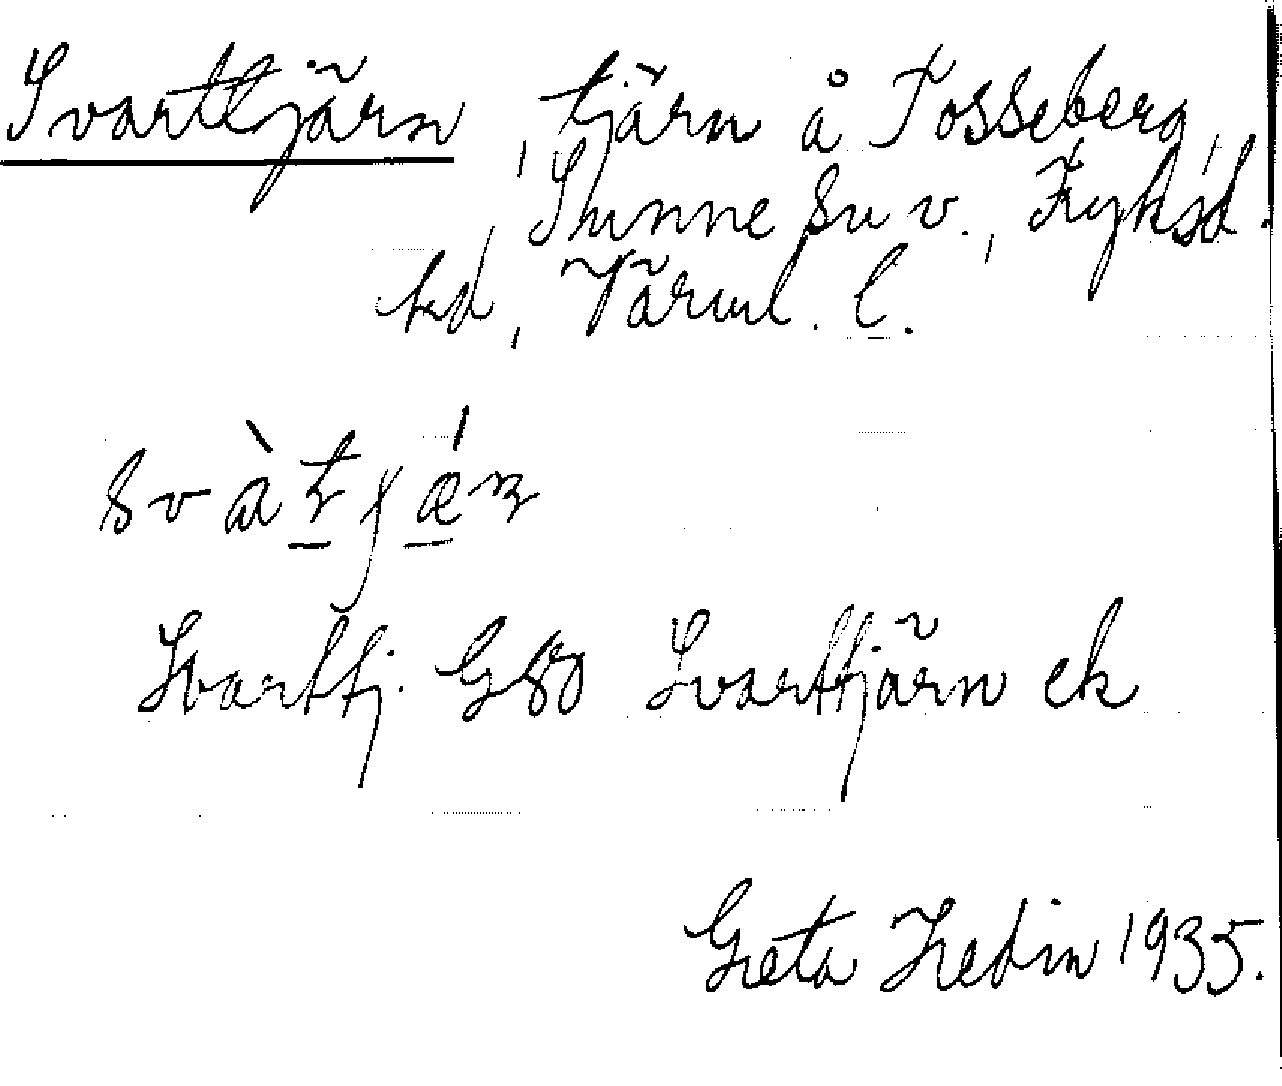 Svarttjärn, tjärn å Tosseberg,
Sunne sn v., Fryksd.
hd, Värml. l.
Svarttj. G80 Svarttjärn ek
Greta Hedin 1935.